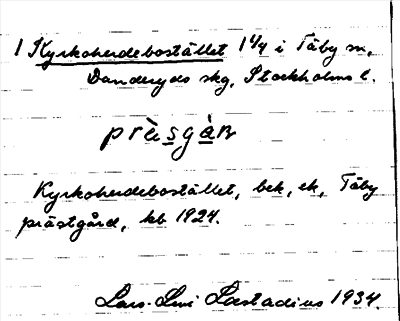 1 Kyrkoherdebostället 1 1/4 i Täby sn,
Danderyds skg, Stockholms l.
prèsgàn
Kyrkoherdebostället, bek, ek, Täby
prästgård, kb 1924.
Lars-Levi Læstadius 1934.